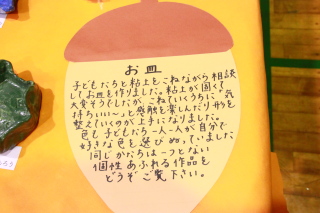 お皿
子どもたちと粘土をこねながら相談
してお皿を作りました。粘土が固くて
大変そうでしたが、こねていくうちに「気
持ちいい〜」と感触を楽しんだり形を
整えていくのが上手になりました。
色も子どもたち一人一人が自分で
好きな色を選びぬっていました
同じかたちは一つとない
個性あふれる作品を
どうぞご覧下さい。